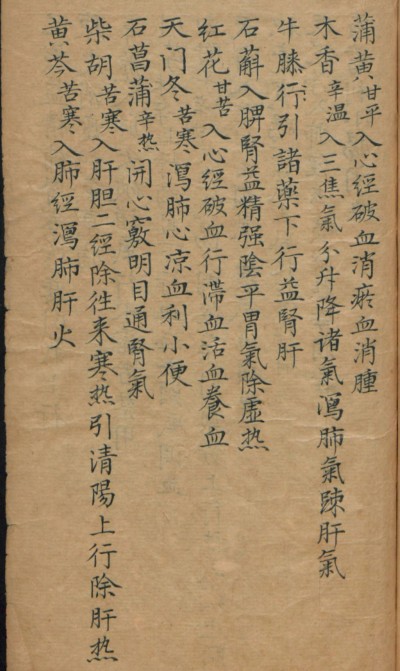 蒲黄甘平入心經破血消瘀血消腫
木香辛温入三焦氣分升降诸氣瀉肺氣疎肝氣
牛膝行引諸藥下行益腎肝
石斛入脾腎益精强陰平胃氣除虚热
红花甘苦入心經破血行滞血活血養血
天门冬苦寒瀉肺心凉血利小便
石菖蒲辛热開心竅明目通腎氣
柴胡苦寒入肝胆二經除往来寒热引清陽上行除肝热
黄芩苦寒入肺經瀉肺肝火